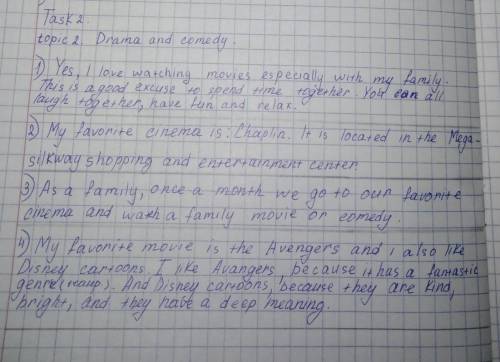 Task 2.
topic 2. Drama and comedy.
1) Yes, I love watching movies especially with my family.
This is a good excuse to spend time together. You can all
laugh together, have fun and relax.
2) My favorite cinema is: Chaplin. It is located in the Mega-
silkway shopping and entertainment center.
3) As a family, once a month we go to our favorite
cinema and watch a family movie or comedy.
4) My favorite movie is the Avengers and i also like
Disney cartoons. I like Avangers, because it has a fantastic
genre( ). And Disney cartoons, because they are kind,
bright, and they have a deep meaning.